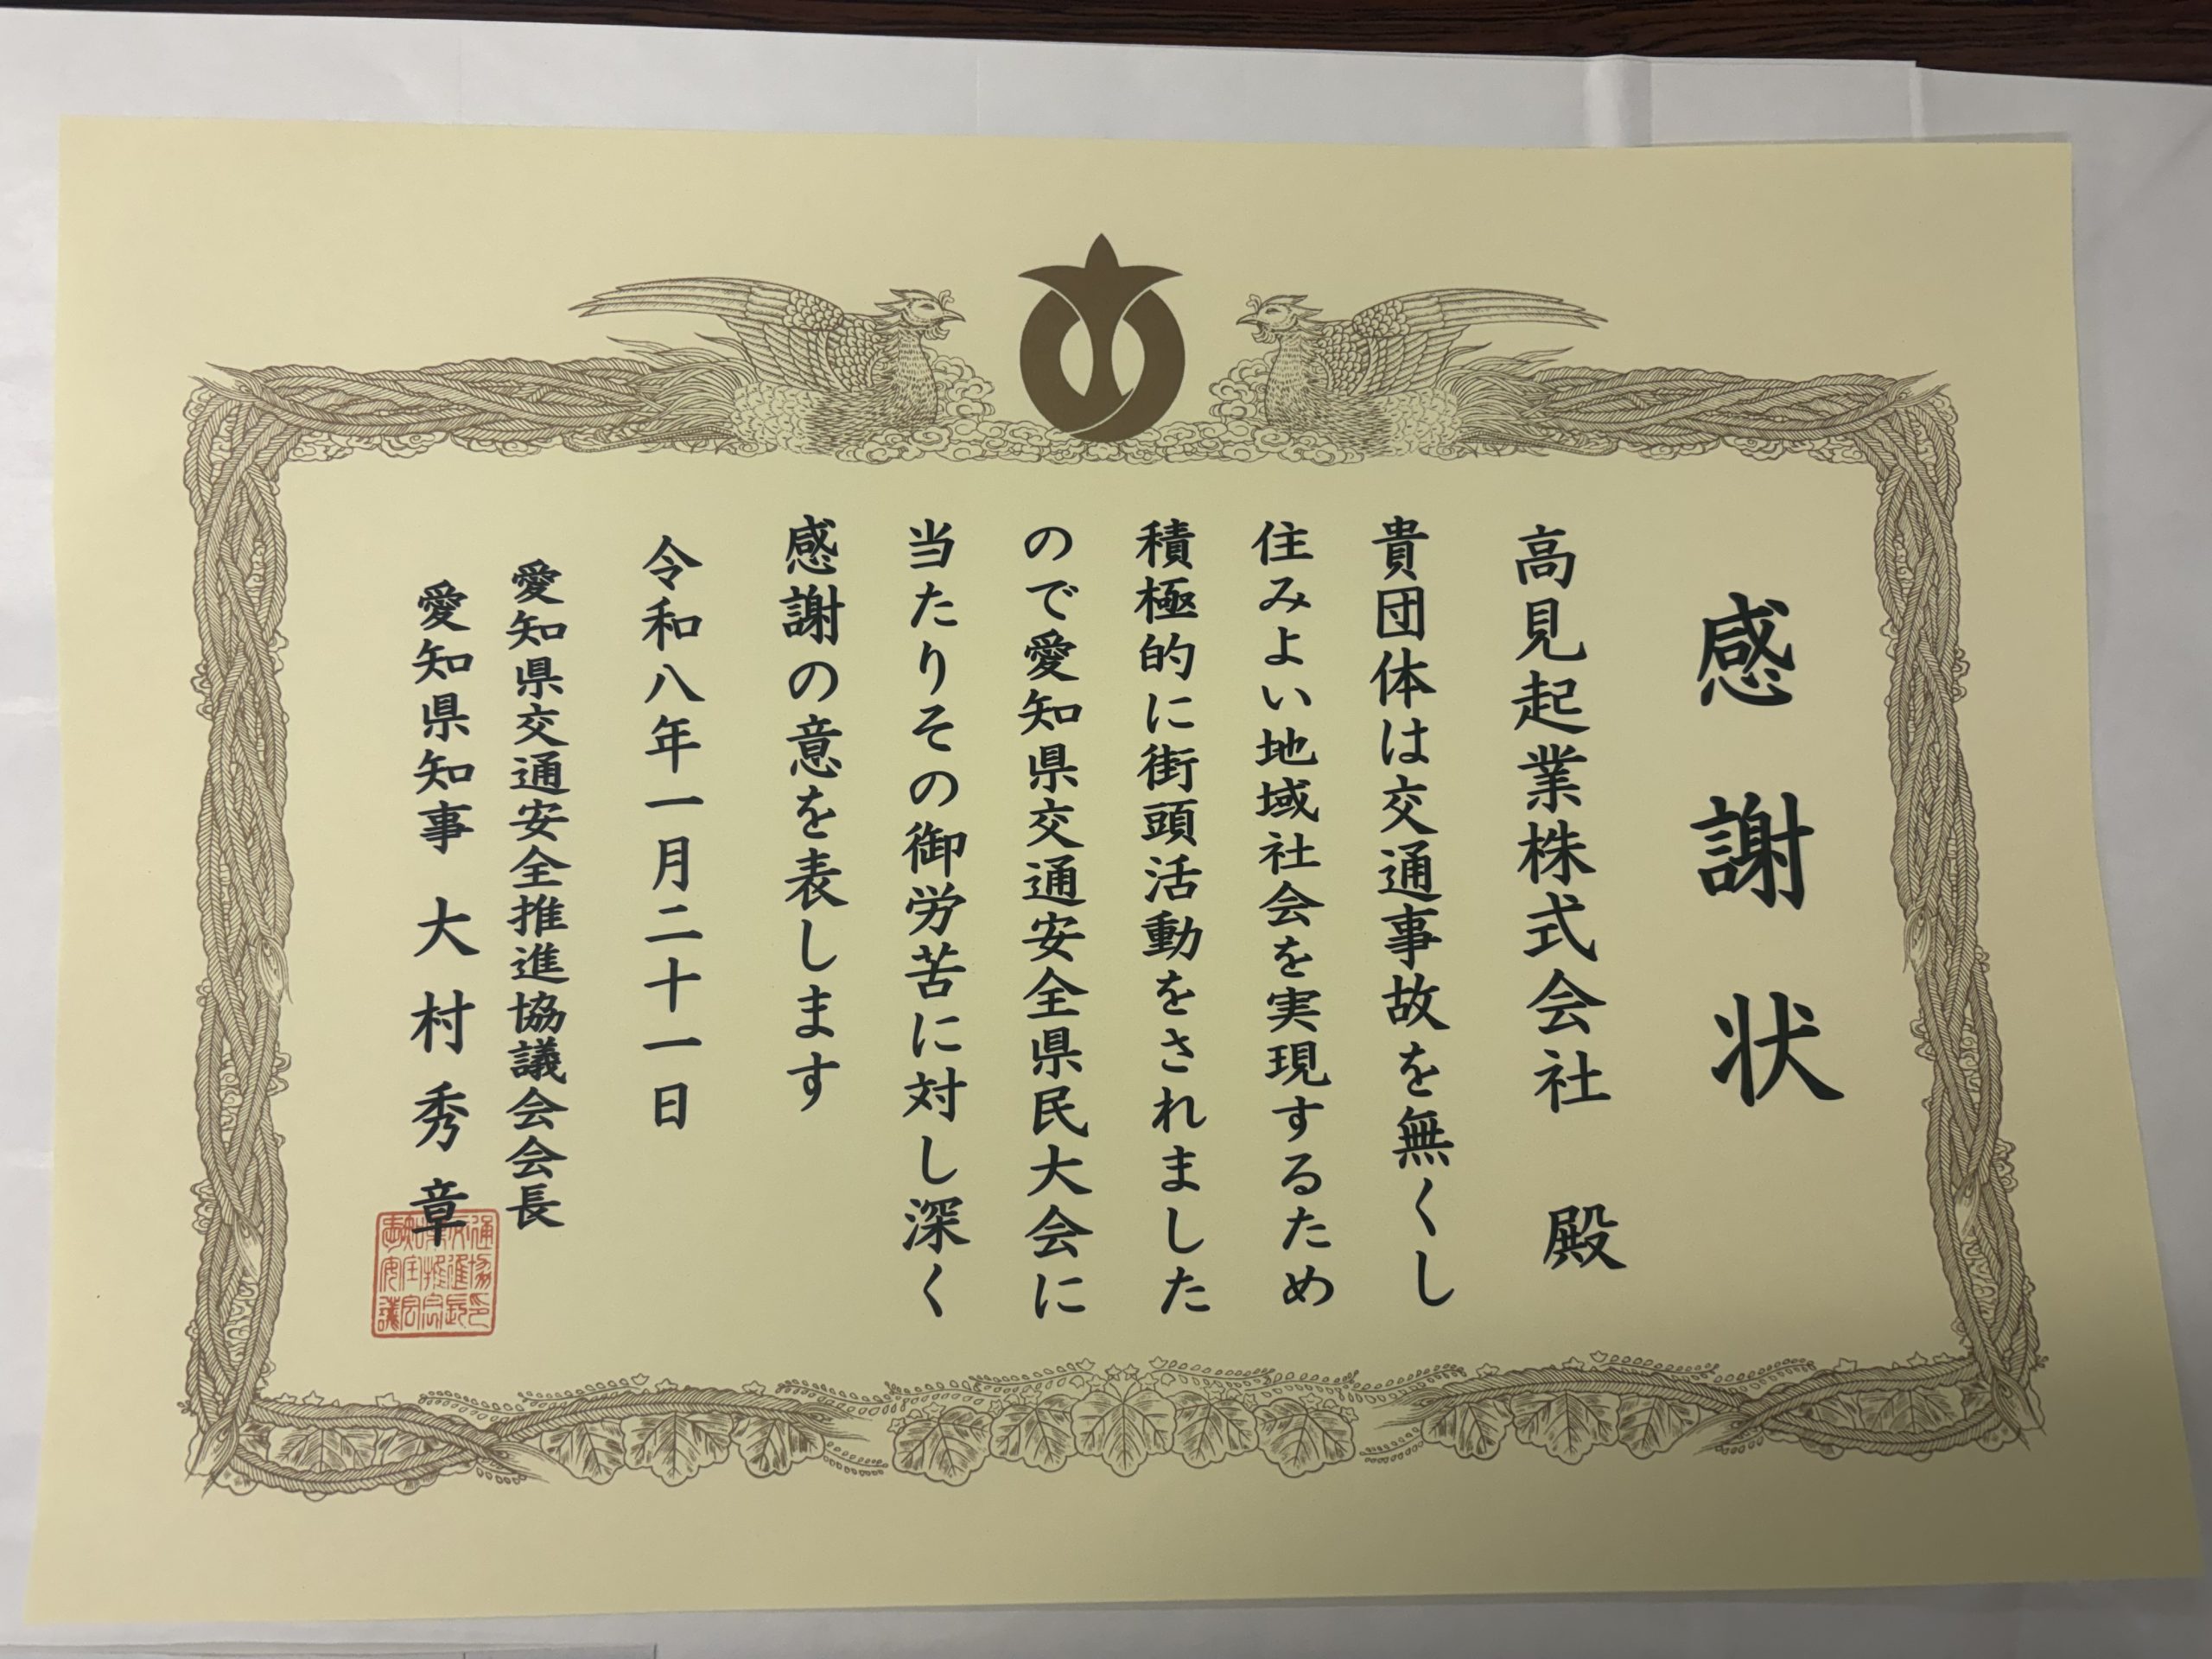 感謝状
高見起業株式会社 殿
貴団体は交通事故を無くし
住みよい地域社会を実現するため
積極的に街頭活動をされました
ので愛知県交通安全県民大会に
当たりその御労苦に対し深く
感謝の意を表します
令和八年一月二十一日
愛知県交通安全推進協議会会長
愛知県知事 大村秀章